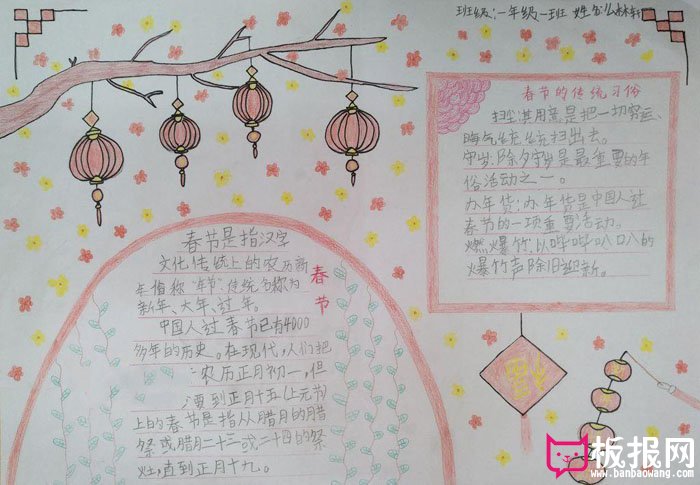 班级:一年级一班 姓名:么林轩
春节的传统习俗
扫尘:其用意是把一切穷运、
晦气统统扫出去。
守岁:除夕守岁是最重要的年
俗活动之一。
办年货:办年货是中国人过
春节的一项重要活动。
燃爆竹:以哔哔叭叭的
爆竹声除旧迎新。
春节是指汉字
文化传统上的农历新
年俗称"年节"传统名称为
新年、大年、过年。
中国人过春节已有4000
多年的历史。在现代,人们把
农历正月初一,但
要到正月十五(上元节)
上的春节是指从腊月的腊
祭或腊月二十三或二十四的祭
灶,直到正月十九。
春节
板报网
www.banbaowang.com